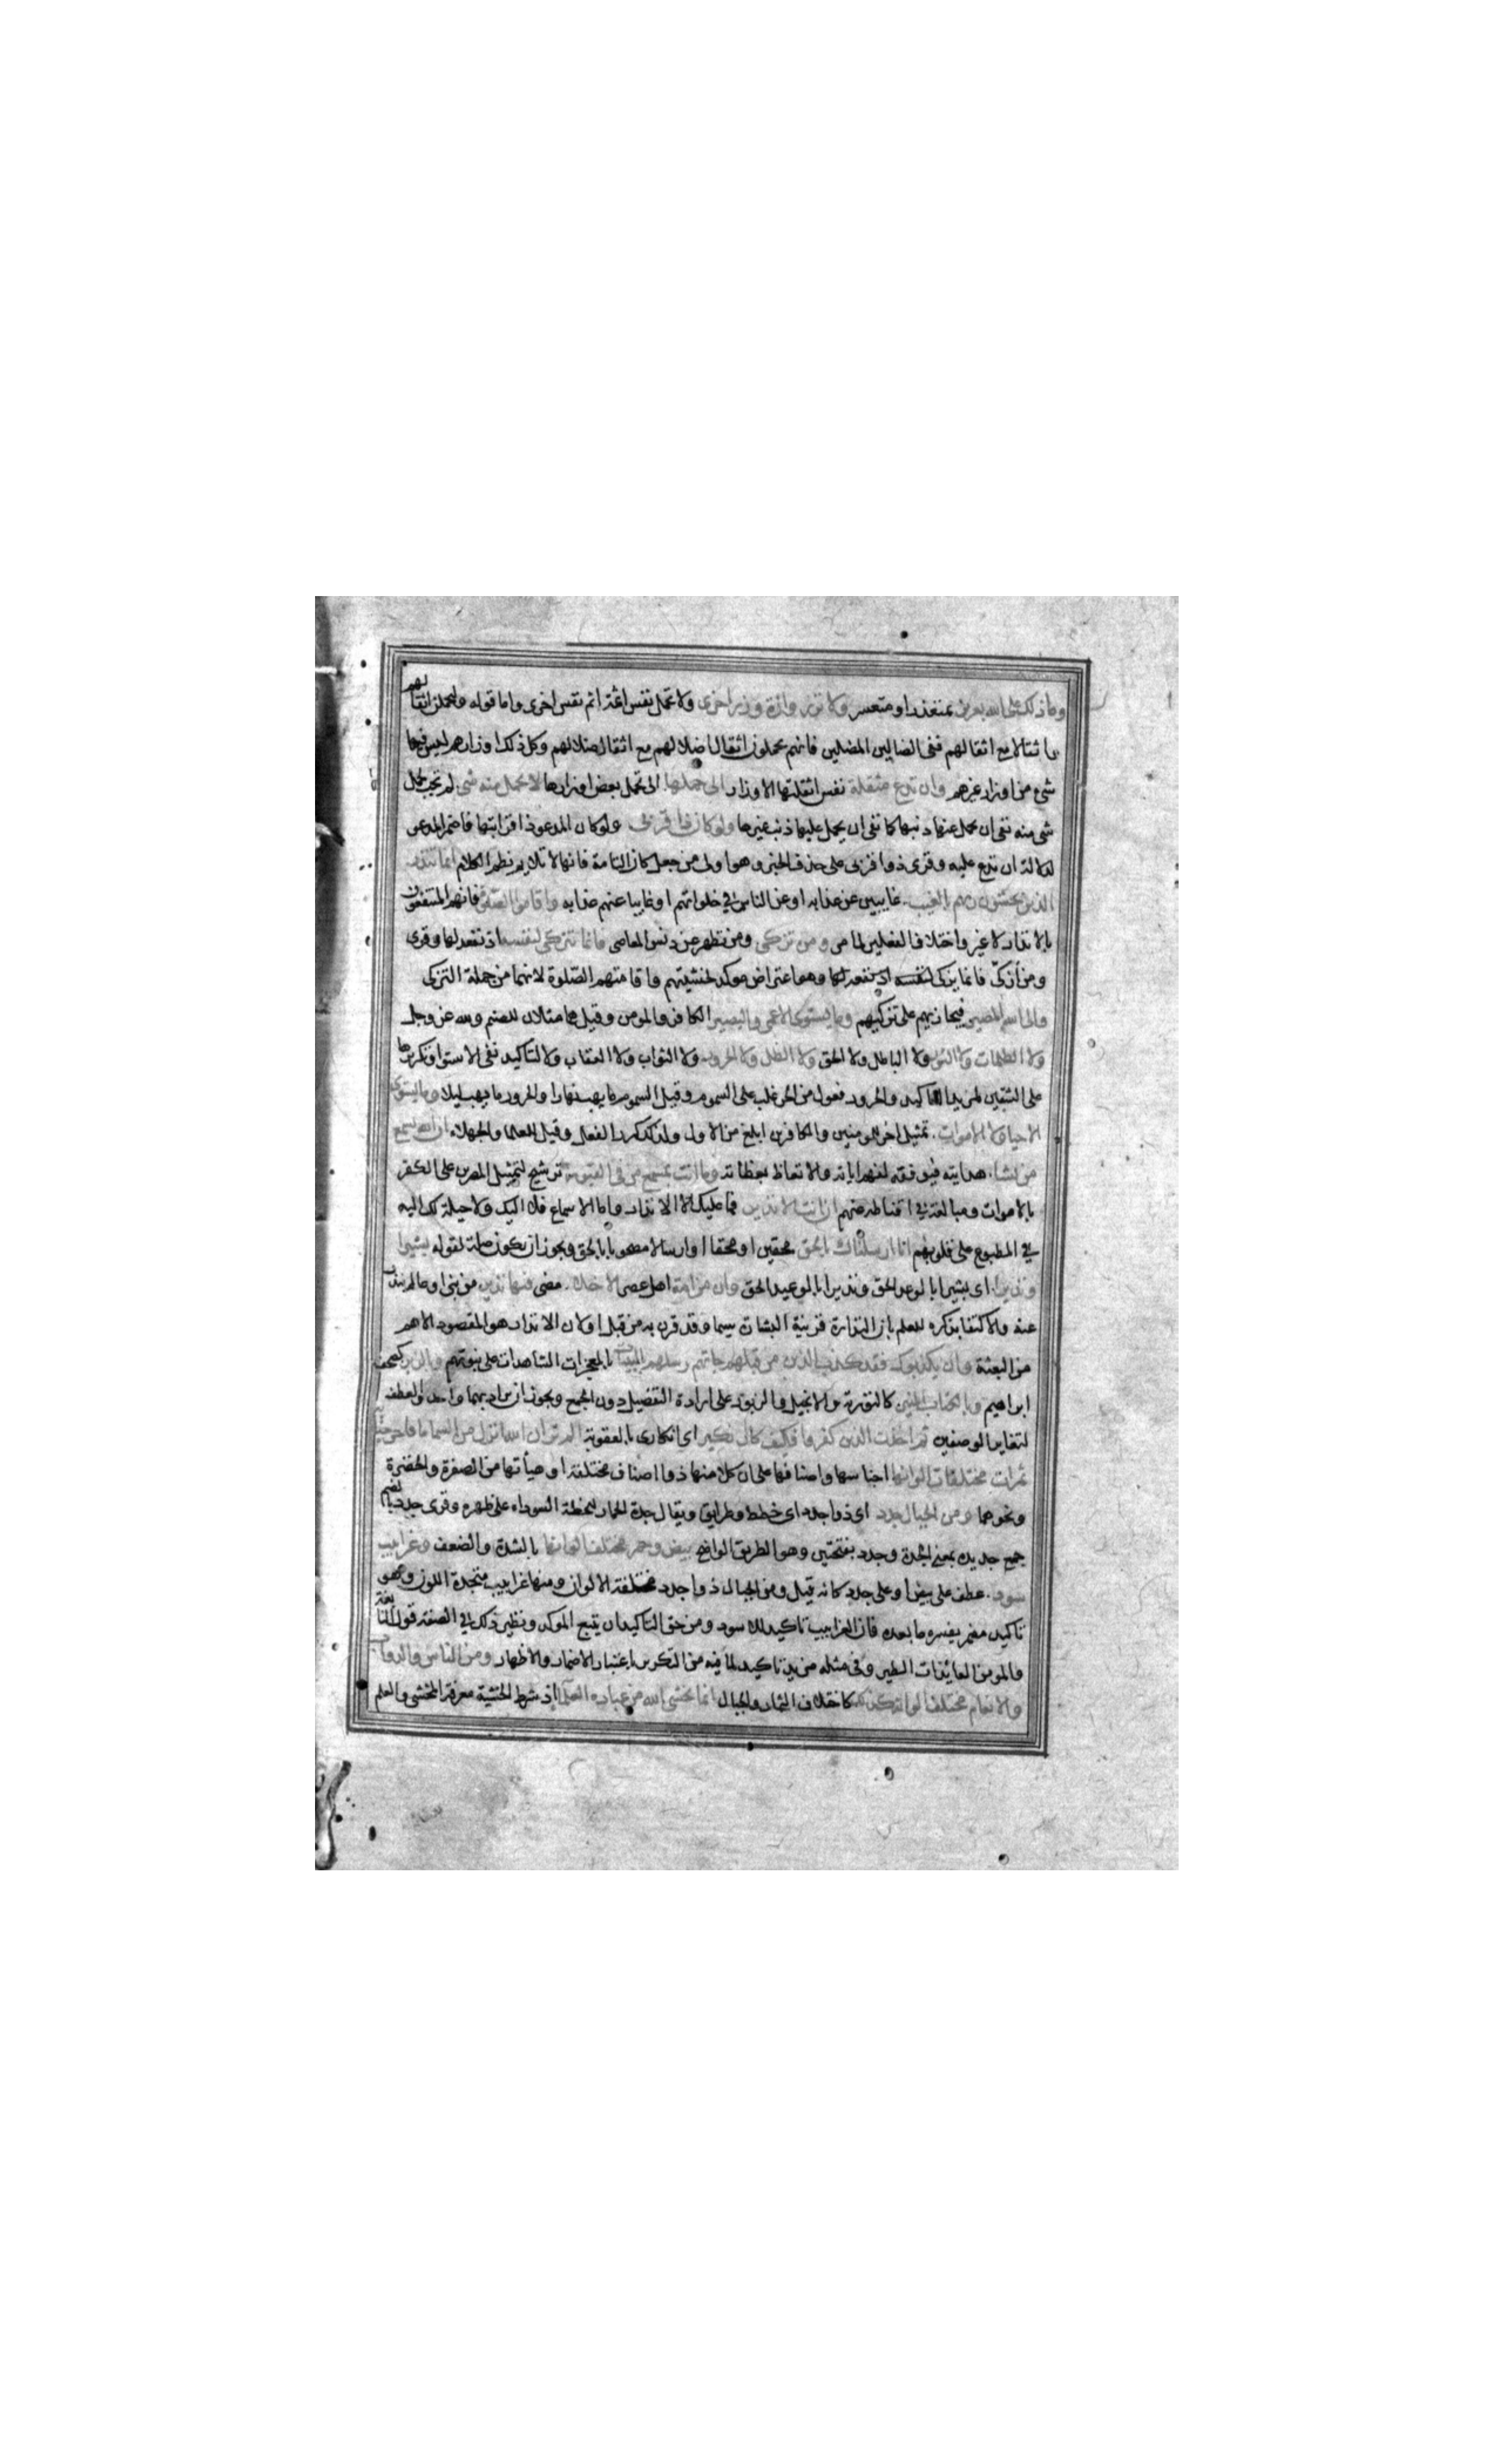 وما ذلك على الله بعزيز بمتعذر او متعسر ولا تزر وازرة وزر اخرى ولا تحمل نفس اثمة اثم نفس اخرى واما قوله وليحملن اثقالهم
واثقالا مع اثقالهم ففي الضالين المضلين فانهم يحملون اثقال اضلالهم مع اثقال ضلالهم وكل ذلك اوزارهم ليس فيها
شيء من اوزار غيرهم وان تدع مثقلة نفس اثقلتها الاوزار الى حملها الى تحمل بعض اوزارها لا يحمل منه شي لم تجب لحمل
شي منه نفى ان يحمل عنها ذنبها كما نفى ان يحمل عليها ذنب غيرها ولو كان ذا قربى ولو كان المدعو ذا قرابتها فاضمر المدعو
لدلالة ان تدع عليه وقرى ذو قربى على حذف الخبر وهو اولى من جعل كان التامة فانها لا تلايم نظم الكلام انما تنذر
الذين يخشون ربهم بالغيب غايبين عن عذابه او عن الناس في خلواتهم او غايبا عنهم عذابه واقاموا الصلوة فانهم المنتفعون
بالانذار لا غير واختلاف الفعلين لما مر ومن تزكى ومن تطهر عن دنس المعاصي فانما يتزكى لنفسه اذ نفعه لها وقرى
ومن ازكى فانما يزكى لنفسه اذ نفعه لها وهو اعتراض موكد لخشيتهم واقامتهم الصلوة لانهما من جملة التزكى
والى الله المصير فيجازيهم على تزكيهم وما يستوى الاعمى والبصير الكافر والمومن وقيل هما مثلان للصنم ولله عز وجل
ولا الظلمات ولا النور ولا الباطل ولا الحق ولا الظل ولا الحرور ولا الثواب ولا العقاب ولا لتاكيد نفي الاستوا وتكريرها
على الشقين لمزيد التاكيد والحرور فعول من الحر غلب على السموم وقيل السموم ما يهب نهارا والحرور ما يهب ليلا وما يستوى
الاحيا ولا الاموات تمثيل اخر للمومنين والكافرين ابلغ من الاول ولذلك كرر الفعل وقيل للعلما والجهلاء ان الله يسمع
من يشا هدايته فيوفقه لفهم اياته والاتعاظ بعظاته وما انت بمسمع من في القبور ترشيح لتمثيل المصرين على الكفر
بالاموات ومبالغة في اقناطه منهم ان انت الا نذير فما عليك الا الانذار واما الاسماع فلا اليك ولا حيلة لك اليه
في المطبوع على قلوبهم انا ارسلناك بالحق محقين او محقا او ارسالا مصحوبا بالحق ويجوز ان يكون صلة لقوله بشيرا
ونذيرا اى بشيرا بالوعد الحق ونذيرا بالوعيد الحق وان من امة اهل عصر الا خلا مضى فيها نذير من نبي او عالم ينذر
عنه والاكتفا بذكره للعلم بان النذارة قرينة البشارة سيما وقد قرن به من قبل او لان الانذار هو المقصود الاهم
من البعثة وان يكذبوك فقد كذب الذين من قبلهم جاتهم رسلهم بالبينات بالمعجزات الشاهدات على نبوتهم وبالزبر كصحف
ابراهيم وبالكتاب المنير كالتورية والانجيل والزبور على ارادة التفضيل دون الجمع ويجوز ان يراد بهما واحد والعطف
لتغاير الوصفين ثم اخذت الذين كفروا فكيف كان نكير اى انكارى بالعقوبة الم تر ان الله انزل من السما ما فاخرجنا به
ثمرات مختلفات الوانها اجناسها واصنافها على ان كلا منها ذو اصناف مختلفة او هيأتها من الصفرة والخضرة
ونحوهما ومن الجبال جدد اى ذو جدد اى خطط وطرايق ويقال جدة الحمار للخطة السوداء على ظهره وقرى جدد بالضم
جمع جديده بمعنى الجدة وجدد بفتحتين وهو الطريق الواضح بيض وحمر مختلف الوانها بالشدة والضعف وغرابيب
سود عطف على بيض او على جدد كانه قيل ومن الجبال ذو جدد مختلفة الالوان ومنها غرابيب متحدة اللون وهو
تاكيد مضمر يفسره ما بعده فان الغرابيب تاكيد للاسود ومن حق التاكيد ان يتبع الموكد ونظير ذلك في الصفة قول النابغة
والمومن العائذات الطير وفى مثله مزيد تاكيد لما فيه من التكرير باعتبار الاضمار والاظهار ومن الناس والدواب
والانعام مختلف الوانه كذلك كاختلاف الثمار والجبال انما يخشى الله من عباده العلماء اذ شرط الخشية معرفة المخشى والعلم